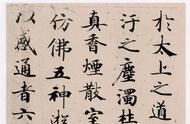 於太上之道
汙之塵濁杜
真香煙散室
仿佛五神遊
以感通者六